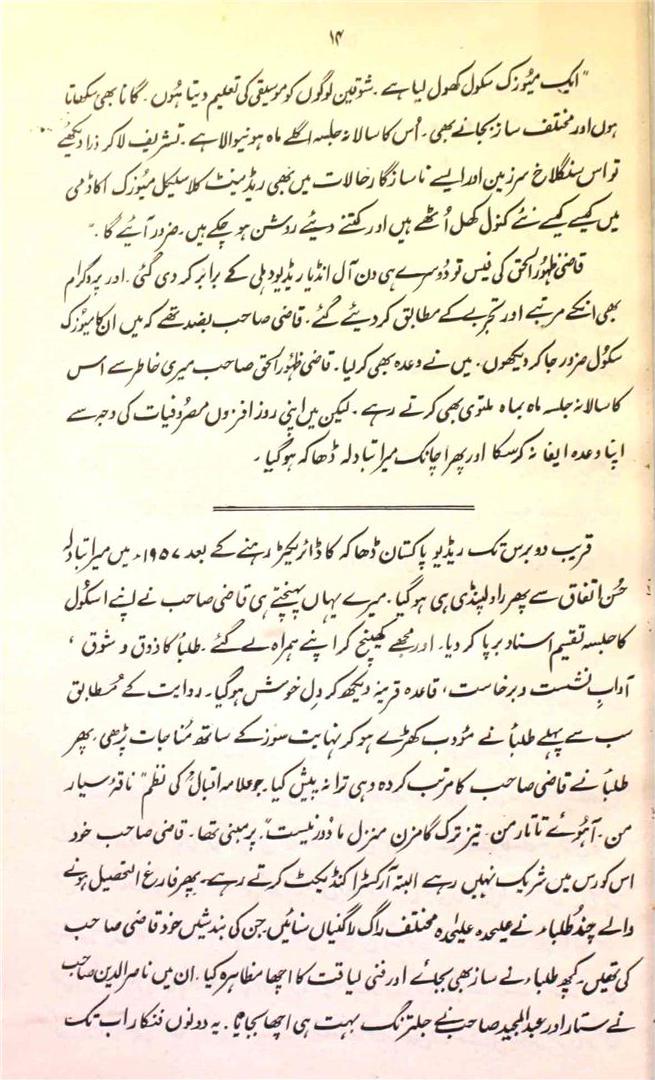 ۱۴
"ایک میوزک سکول کھول لیا ہے۔ شوقین لوگوں کو موسیقی کی تعلیم دیتا ہوں۔ گانا بھی سکھاتا
ہوں اور مختلف ساز بجانے بھی۔ اُس کا سالانہ جلسہ اگلے ماہ ہونیوالا ہے۔ تشریف لا کر ذرا دیکھیے
تو اس سنگلاخ سرزمین اور ایسے ناسازگار حالات میں بھی ریڈمینٹ کلاسیکل میوزک اکاڈمی
میں کیسے کیسے نئے کنول کھل اُٹھے ہیں اور کتنے دیئے روشن ہو چکے ہیں۔ ضرور آئیے گا۔"
قاضی ظہُور الحق کی فیس تو دُوسرے ہی دن آل انڈیا ریڈیو دہلی کے برابر کر دی گئی۔ اور پروگرام
بھی انکے مرتبے اور تجربے کے مطابق کر دیئے گئے۔ قاضی صاحب بضد تھے کہ میں ان کا میوزک
سکُول ضرور جا کر دیکھوں۔ میں نے وعدہ بھی کر لیا۔ قاضی ظہُور الحق صاحب میری خاطر سے اس
کا سالانہ جلسہ ماہ بماہ ملتوی بھی کرتے رہے۔ لیکن میں اپنی روز افزوں مصروفیات کی وجہ سے
اپنا وعدہ ایفا نہ کر سکا اور پھر اچانک میرا تبادلہ ڈھاکہ ہو گیا۔
قریب دو برس تک ریڈیو پاکستان ڈھاکہ کا ڈائریکٹر رہنے کے بعد ۱۹۵۷ء میں میرا تبادلہ
حُسنِ اتفاق سے پھر راولپنڈی ہی ہو گیا۔ میرے یہاں پہنچتے ہی قاضی صاحب نے اپنے اسکُول
کا جلسہ تقیم اسناد برپا کر دیا۔ اور مجھے کھینچ کر اپنے ہمراہ لے گئے۔ طلبأ کا ذوق و شوق،
آدابِ نشست و برخاست، قاعدہ قرینہ دیکھ کر دِل خوش ہو گیا۔ روایت کے مُطابق
سب سے پہلے طلبأ نے مؤدب کھڑے ہو کر نہایت سوز کے ساتھ مُناجات پڑھی۔ پھر
طلبأ نے قاضی صاحب کا مرتب کردہ وہی ترانہ پیش کیا۔ جو علامہ اقبالؒ کی نظم "ناقۂ سیار
من۔ آہُوئے تاتار من۔ تیز ترک گامزن منزل ما دُور نیست"۔ پر مبنی تھا۔ قاضی صاحب خود
اس کورس میں شریک نہیں رہے البتہ آرکسٹرا کنڈیکٹ کرتے رہے۔ پھر فارغ التحصیل ہونے
والے چند طُلباء نے علیحدہ علیٰحدہ مختلف راگ راگنیاں سنائیں جن کی بندشیں خود قاضی صاحب
کی تھیں۔ کچھ طلباء نے ساز بھی بجائے اور فنی لیاقت کا اچھا مظاہرہ کیا۔ ان میں ناصر الدین صاحب
نے ستار اور عبدالمجید صاحب نے جلترنگ بہت ہی اچھا بجایا۔ یہ دونوں فنکار اب تک